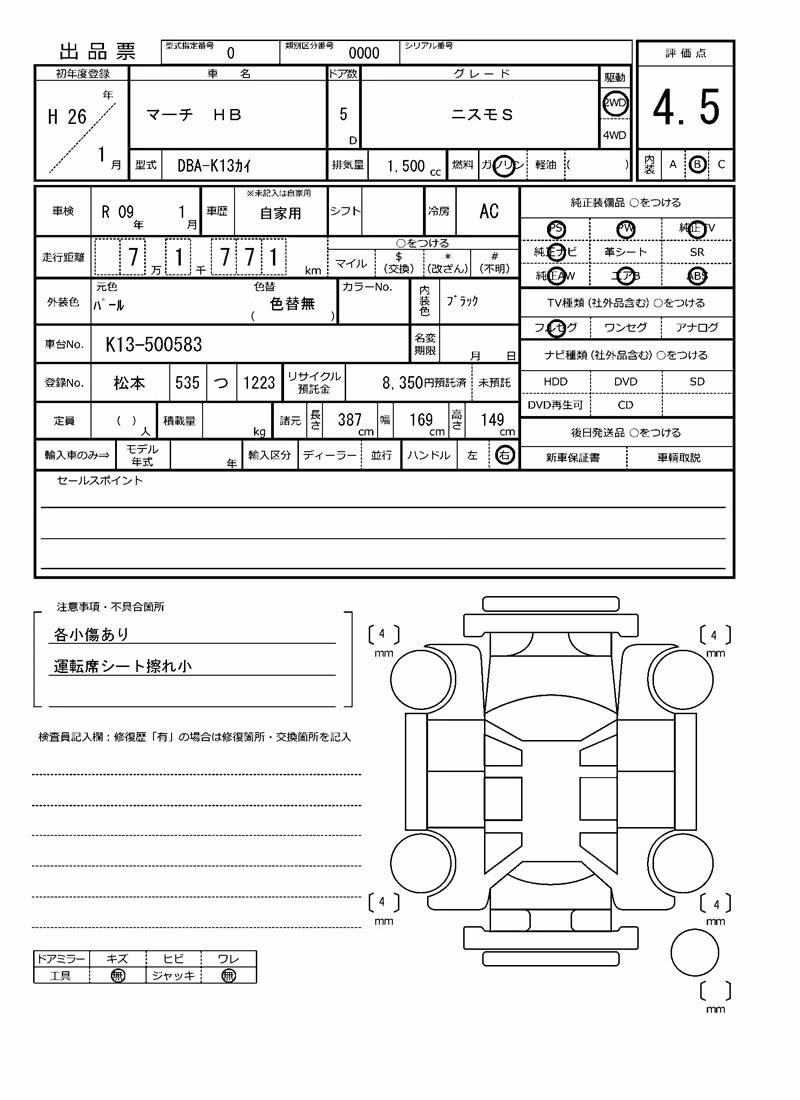 出品票 型式指定番号 0 類別区分番号 0000 シリアル番号
評価点
4.5
内装 A B C
初年度登録 車名 ドア数 グレード 駆動
H 26 年 1 月 マーチ HB 5 D ニスモS 2WD
4WD
型式 DBA-K13カイ 排気量 1,500 cc 燃料 ガソリン 軽油 ( )
車検 R 09 年 1 月 車歴 ※未記入は自家用 自家用 シフト 冷房 AC
走行距離 7 万 1 千 7 7 1 km ○をつける
マイル $ (交換) * (改ざん) # (不明)
外装色 元色 パール 色替 ( 色替無 ) カラーNo. 内装色 ブラック
車台No. K13-500583 名変期限 月 日
登録No. 松本 535 つ 1223 リサイクル預託金 8,350円預託済 未預託
定員 ( ) 人 積載量 kg 諸元 長さ 387 cm 幅 169 cm 高さ 149 cm
輸入車のみ⇒ モデル年式 年 輸入区分 ディーラー 並行 ハンドル 左 右
純正装備品 ○をつける
PS PW 純正TV
純正ナビ 革シート SR
純正AW エアB ABS
TV種類 (社外品含む) ○をつける
フルセグ ワンセグ アナログ
ナビ種類 (社外品含む) ○をつける
HDD DVD SD
DVD再生可 CD
後日発送品 ○をつける
新車保証書 車輌取説
セールスポイント
注意事項・不具合箇所
各小傷あり
運転席シート擦れ小
検査員記入欄：修復歴「有」の場合は修復箇所・交換箇所を記入
[ 4 ] mm
[ 4 ] mm
[ 4 ] mm
[ 4 ] mm
[ ] mm
ドアミラー キズ ヒビ ワレ
工具 無 ジャッキ 無